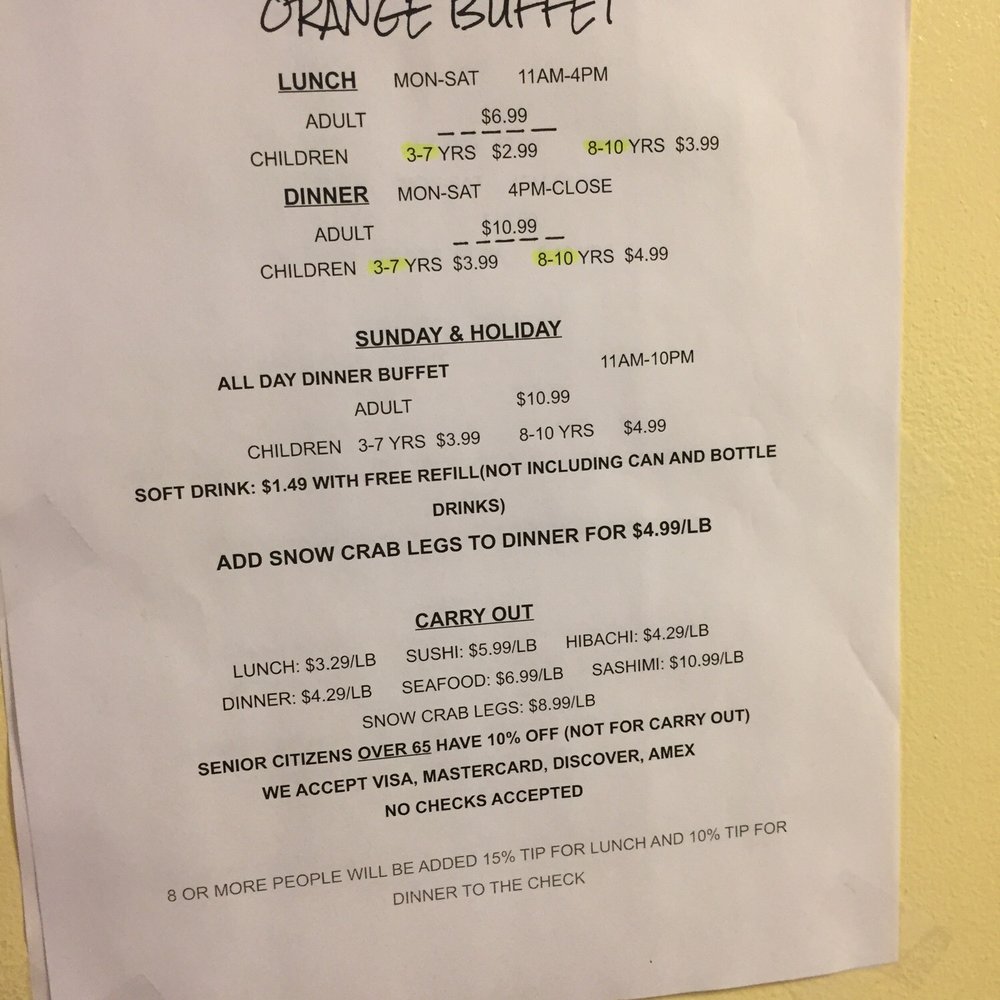 ORANGE BUFFET
LUNCH MON-SAT 11AM-4PM
ADULT $6.99
CHILDREN 3-7 YRS $2.99 8-10 YRS $3.99
DINNER MON-SAT 4PM-CLOSE
ADULT $10.99
CHILDREN 3-7 YRS $3.99 8-10 YRS $4.99
SUNDAY & HOLIDAY
ALL DAY DINNER BUFFET 11AM-10PM
ADULT $10.99
CHILDREN 3-7 YRS $3.99 8-10 YRS $4.99
SOFT DRINK: $1.49 WITH FREE REFILL(NOT INCLUDING CAN AND BOTTLE
DRINKS)
ADD SNOW CRAB LEGS TO DINNER FOR $4.99/LB
CARRY OUT
LUNCH: $3.29/LB SUSHI: $5.99/LB HIBACHI: $4.29/LB
DINNER: $4.29/LB SEAFOOD: $6.99/LB SASHIMI: $10.99/LB
SNOW CRAB LEGS: $8.99/LB
SENIOR CITIZENS OVER 65 HAVE 10% OFF (NOT FOR CARRY OUT)
WE ACCEPT VISA, MASTERCARD, DISCOVER, AMEX
NO CHECKS ACCEPTED
8 OR MORE PEOPLE WILL BE ADDED 15% TIP FOR LUNCH AND 10% TIP FOR
DINNER TO THE CHECK